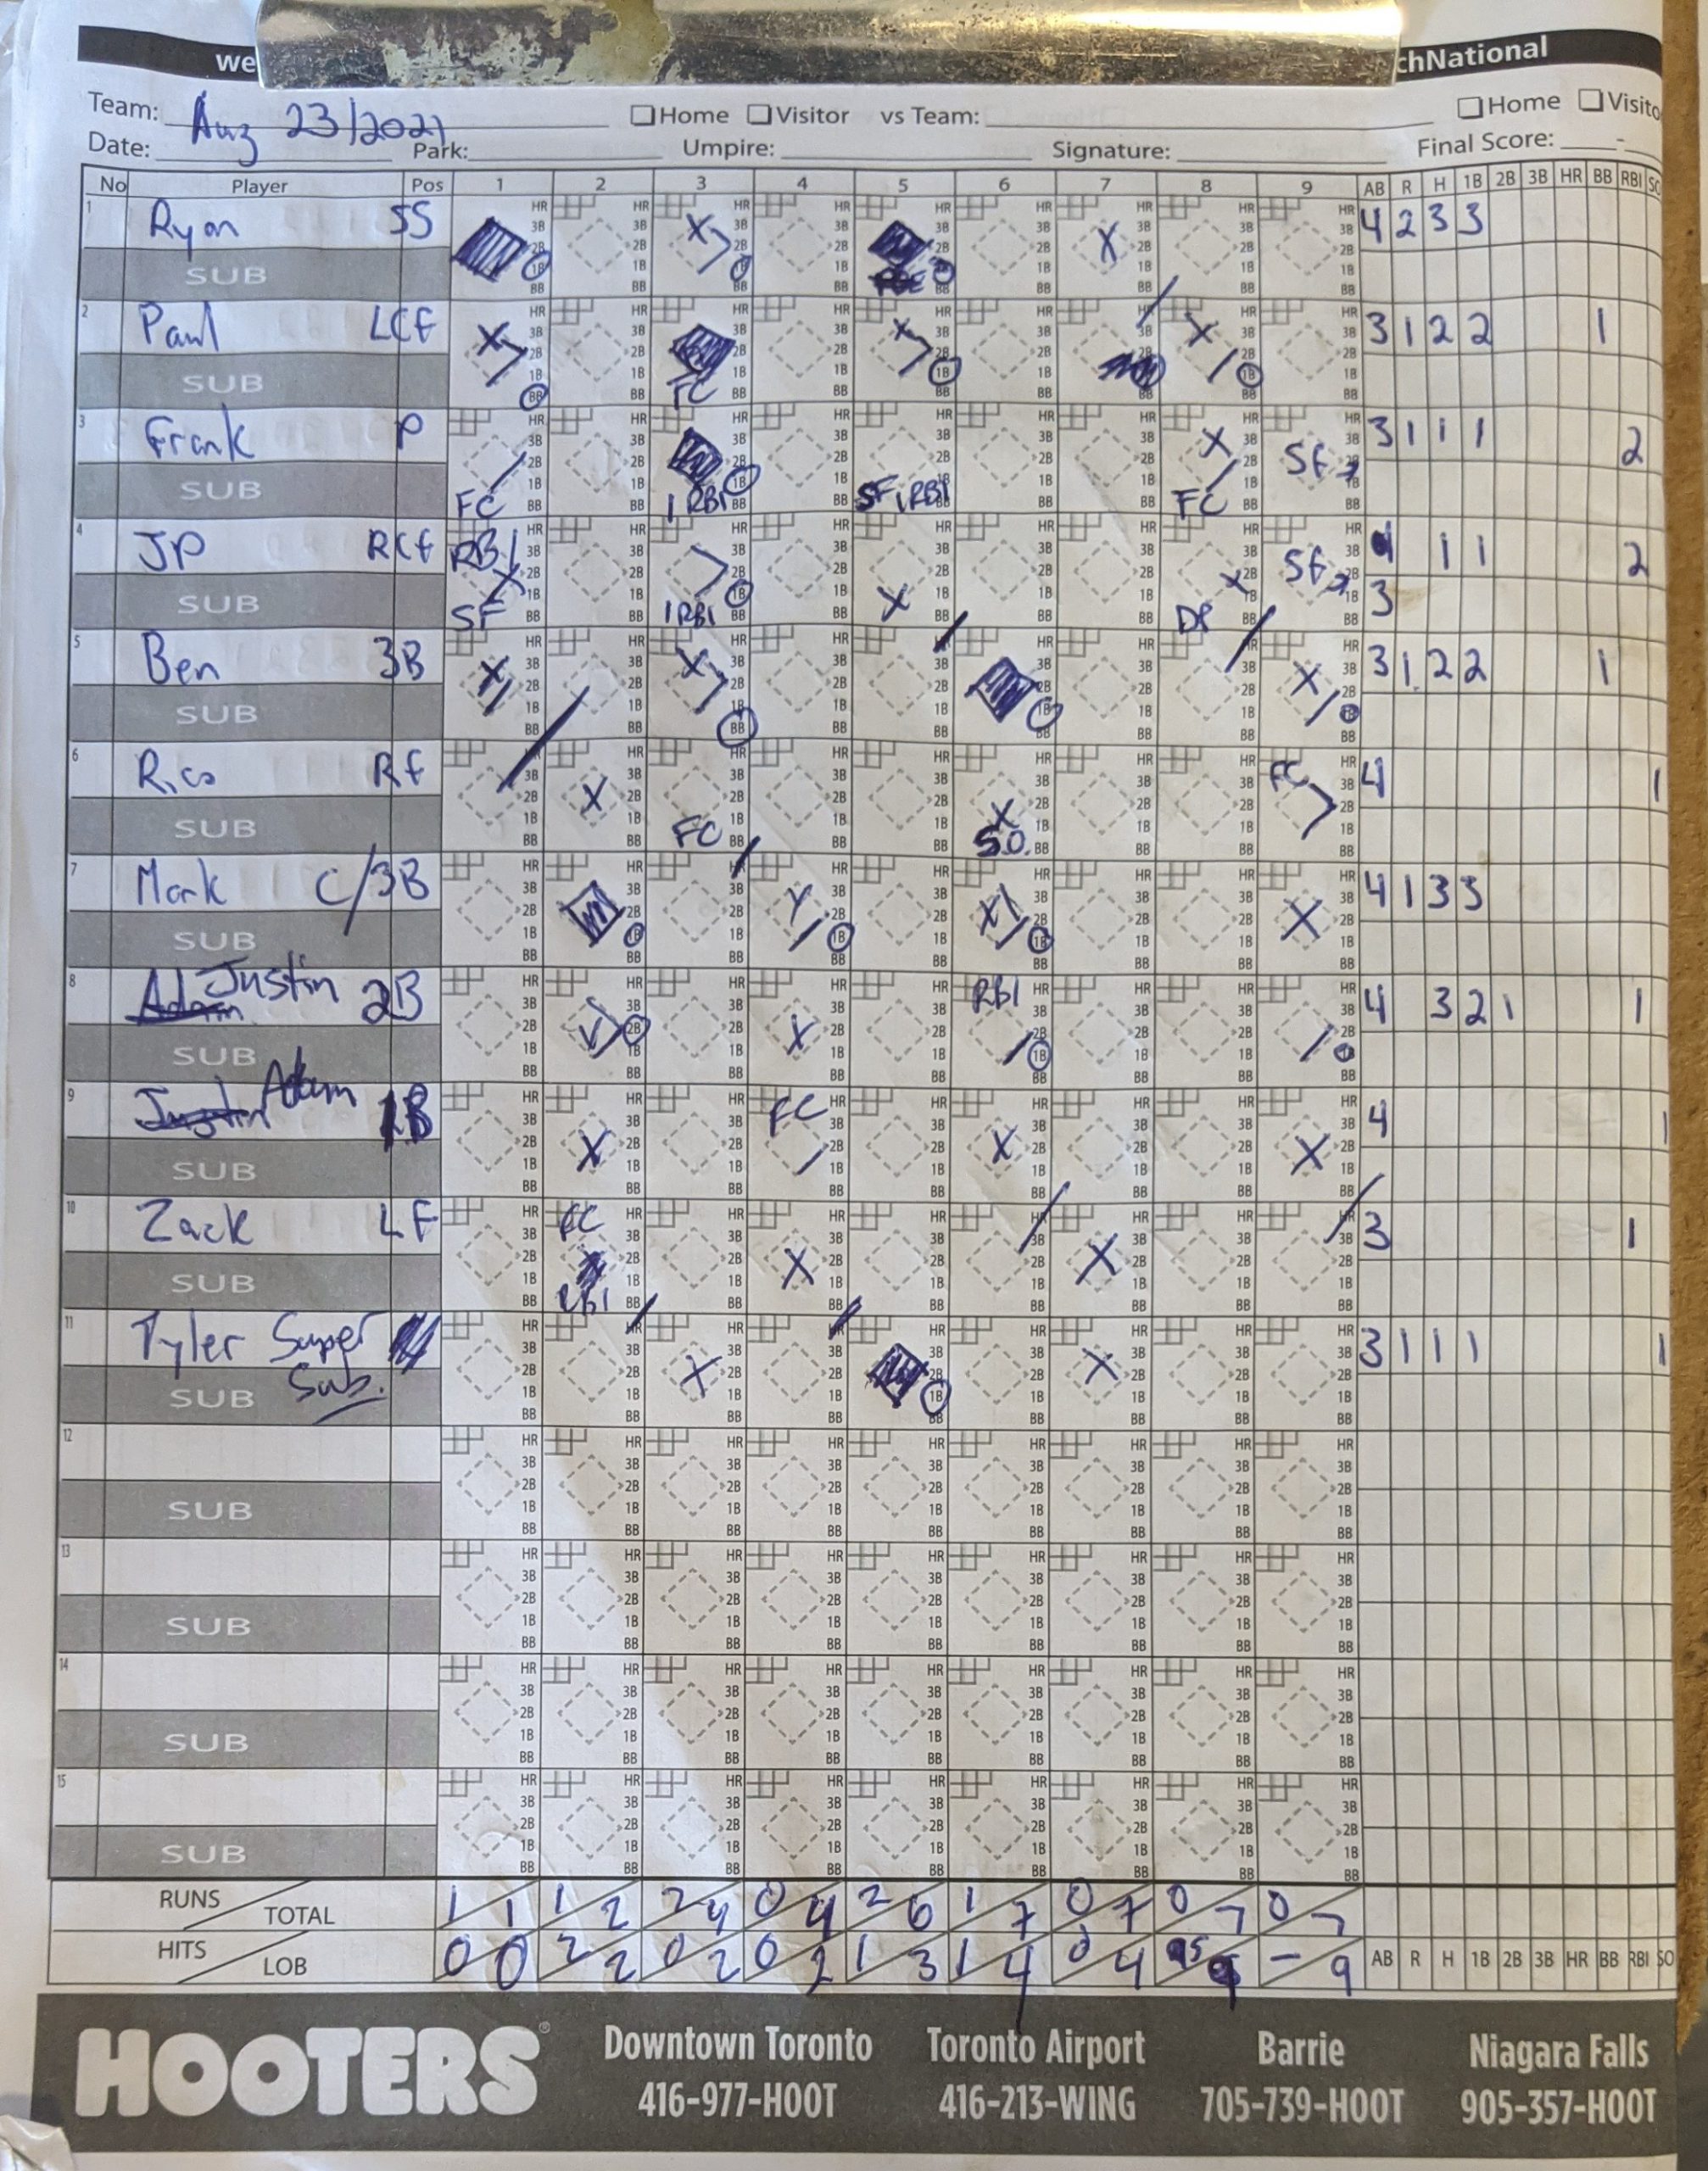 we chNational
Team: Aug 23/2021 Home Visitor vs Team: Home Visito
Date: Park: Umpire: Signature: Final Score: -
No Player Pos 1 2 3 4 5 6 7 8 9 AB R H 1B 2B 3B HR BB RBI SO
1 Ryan SS 4 2 3 3
SUB
2 Paul LCF 3 1 2 2 1
SUB FC
3 Frank P SF 3 1 1 1 2
SUB FC 1 RBI SF 1 RBI FC
4 JP RCF RBI SF 1 1 2
SUB SF 1 RBI DP 3
5 Ben 3B 3 1 2 2 1
SUB
6 Rico RF FC 4 1
SUB FC S.O.
7 Mark C/3B 4 1 3 3
SUB
8 Justin 2B RBI 4 3 2 1 1
SUB
9 Adam 1B FC 4 1
SUB
10 Zack LF FC 3 1
SUB RBI
11 Tyler Super 3 1 1 1 1
SUB Sub.
12
SUB
13
SUB
14
SUB
15
SUB
RUNS / TOTAL 1/1 1/2 2/4 0/4 2/6 1/7 0/7 0/7 0/7
HITS / LOB 0/0 2/2 0/2 0/2 1/3 1/4 0/4 -/9 AB R H 1B 2B 3B HR BB RBI SO
HOOTERS Downtown Toronto Toronto Airport Barrie Niagara Falls
416-977-HOOT 416-213-WING 705-739-HOOT 905-357-HOOT